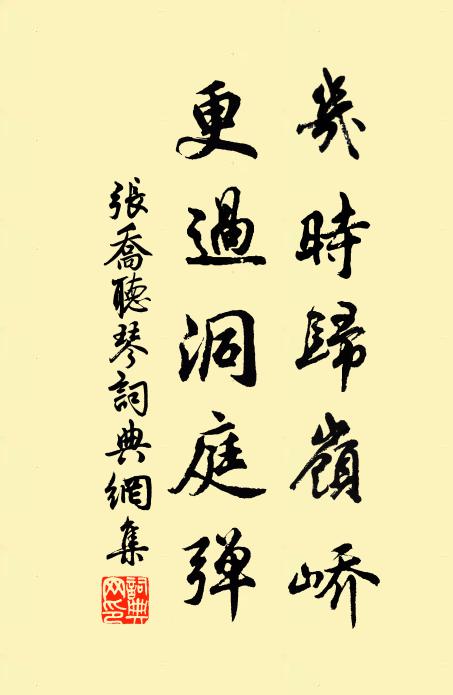 幾時歸嶺嶠
更過洞庭彈
張喬聽琴詞典網集
詞典網印